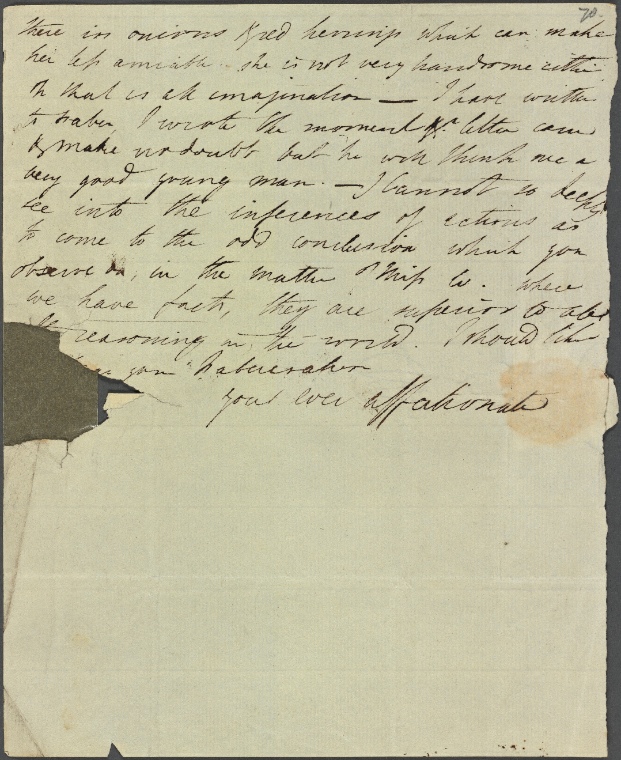 70.
there is in onions & red herrings which can make
her less amiable. she is not very handsome either
Oh that is all imagination — I have written
to Faber, I wrote the moment yr. letter came
& make no doubt but he will think me a
very good young man. — I cannot so deeply
see into the inferences of actions as
to come to the odd conclusion which you
observe on, in the matter of Miss W. where
we have facts, they are superior to all
reasoning in the world. I should like
your
your ever affectionate